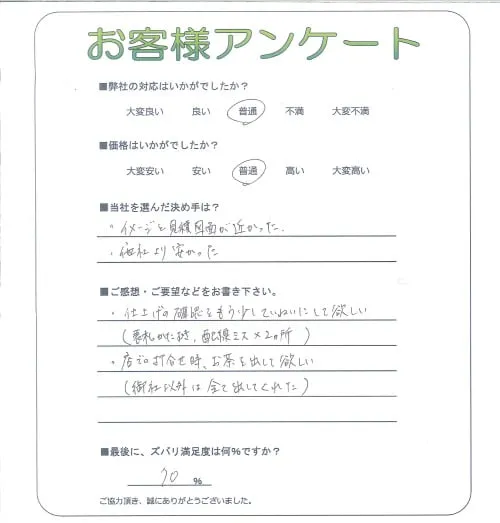 お客様アンケート
■弊社の対応はいかがでしたか？
大変良い 良い 普通 不満 大変不満
■価格はいかがでしたか？
大変安い 安い 普通 高い 大変高い
■当社を選んだ決め手は？
・イメージと見積図面が近かった．
・他社より安かった
■ご感想・ご要望などをお書き下さい。
・仕上げの確認をもう少していねいにして欲しい
(表札かたむき，配線ミス×2ヵ所)
・店での打合せ時、お茶を出して欲しい
(御社以外は全て出してくれた)
■最後に、ズバリ満足度は何%ですか？
70 %
ご協力頂き、誠にありがとうございました。